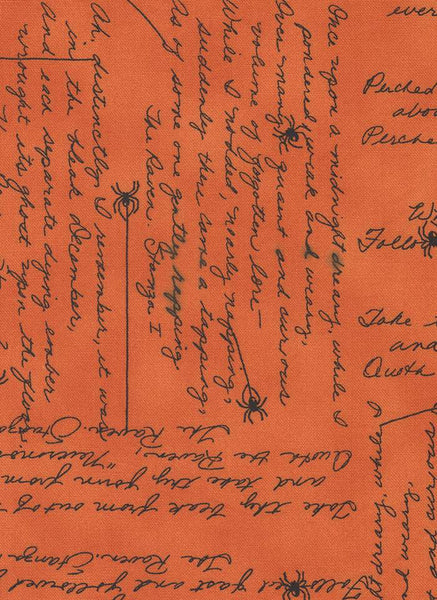 Once upon a midnight dreary, while I
pondered, weak and weary,
Over many a quaint and curious
volume of forgotten lore—
While I nodded, nearly napping,
suddenly there came a tapping,
As of some one gently rapping
The Raven. Stanza I
Ah distinctly I remember, it was
in the bleak December,
and each separate dying ember
wrought its ghost upon the floor
ever
Perched
abo
Perche
W
Follo
Take
and
Quoth
Followed fast and followed
The Raven. Stanza
Take thy beak from out of
and take thy form
Quoth the Raven, "Nevermor
The Raven. Stanza